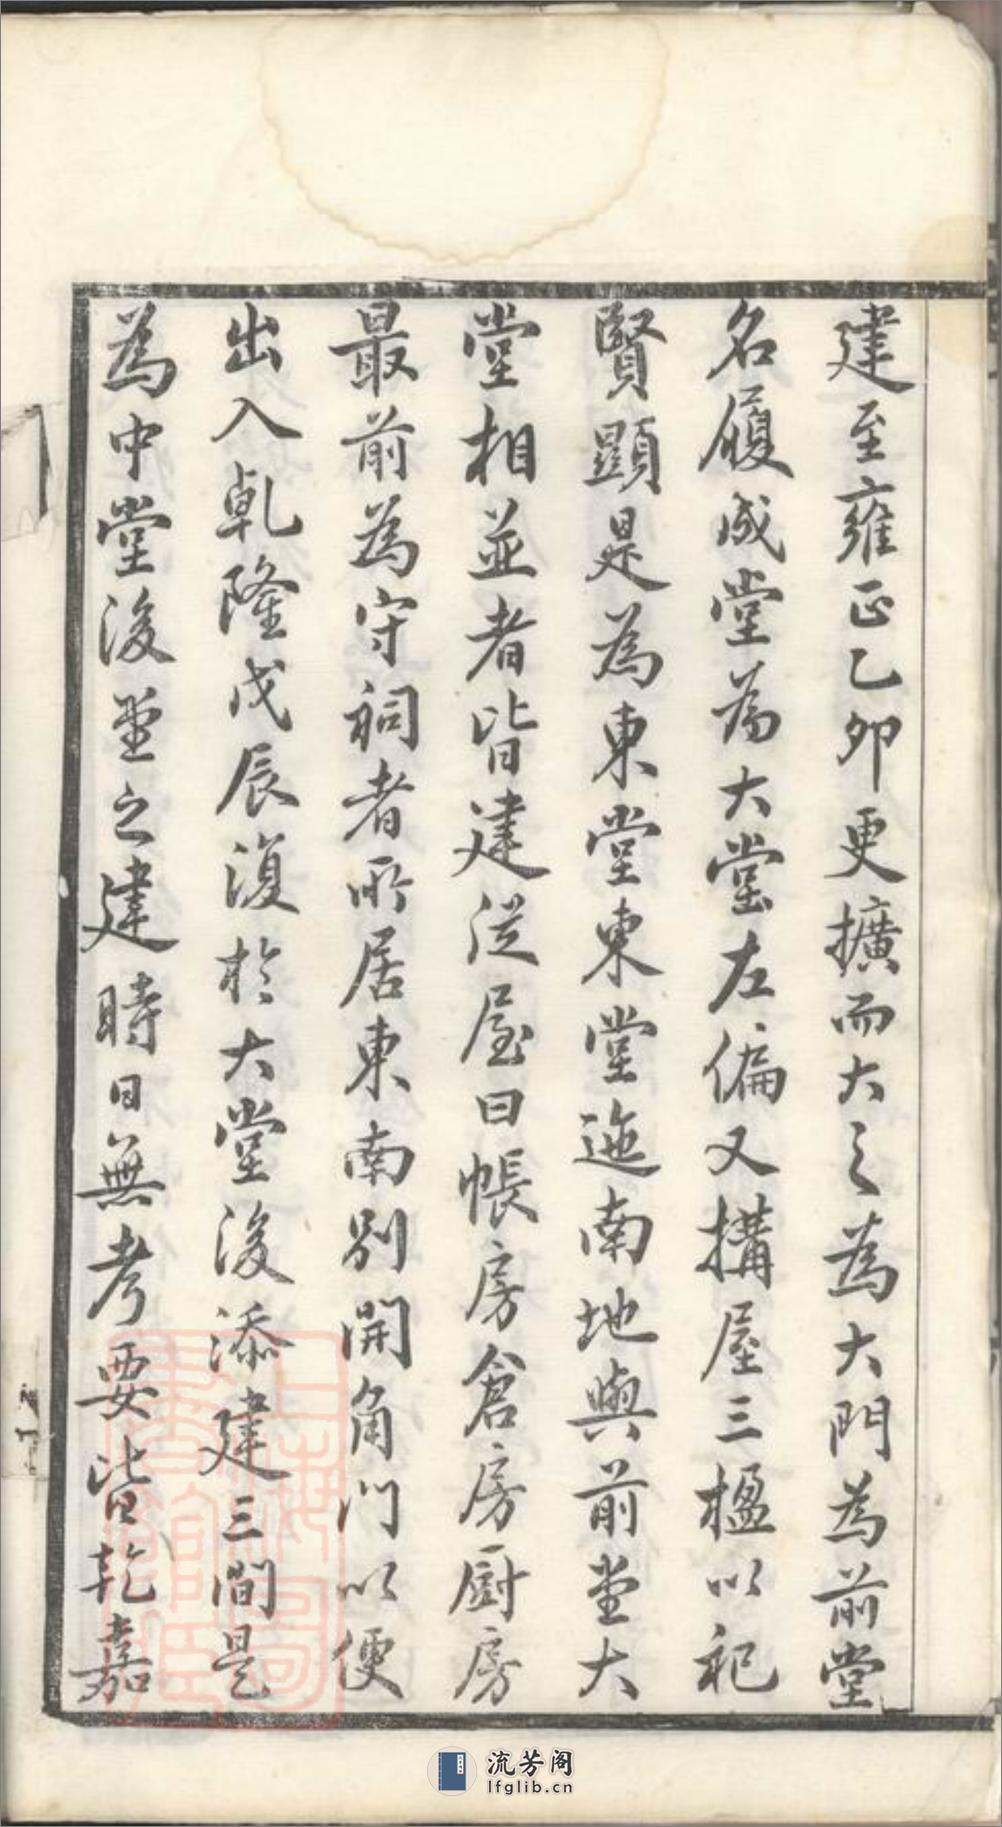 建至雍正乙卯更擴而大之為大門為前堂
名履成堂為大堂左偏又搆屋三楹以祀
賢顯是為東堂東堂迤南地與前堂大
堂相並者皆建從屋曰帳房倉房厨房
最前為守祠者所居東南別開角門以便
出入乹隆戊辰復於大堂後添建三間是
為中堂後堂之建時日無考要皆乾嘉
流芳阁
lfglib.cn